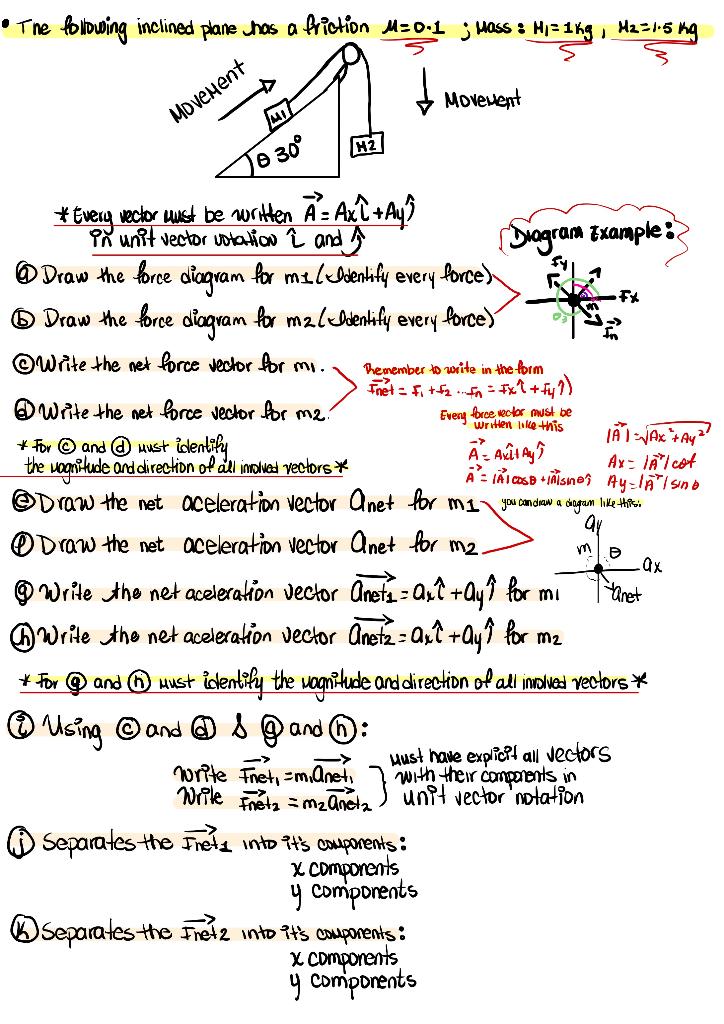 • The following inclined plane has a friction M=0.1 ; Mass: M1=1kg, M2=1.5 kg
MOVEMENT
M1
θ 30°
M2
MOVEMENT
* Every vector must be written A = Axî + Ayĵ
in unit vector notation î and ĵ
Diagram Example:
Fy
Fx
m
Fn
(a) Draw the force diagram for m1 (Identify every force)
(b) Draw the force diagram for m2 (Identify every force)
(c) Write the net force vector for m1.
(d) Write the net force vector for m2.
Remember to write in the form
Fnet = F1 + F2 ... Fn = Fxî + Fyĵ)
Every force vector must be
written like this
A = Axî + Ayĵ
A = |A|cosθ + |A|sinθĵ
|A| = √Ax² + Ay²
Ax = |A| cosθ
Ay = |A| sinθ
* For (c) and (d) must identify
the magnitude and direction of all involved vectors *
(e) Draw the net aceleration vector anet for m1
(f) Draw the net aceleration vector anet for m2
you can draw a diagram like this:
ay
m
θ
ax
anet
(g) Write the net aceleration vector anet1 = axî + ayĵ for m1
(h) Write the net aceleration vector anet2 = axî + ayĵ for m2
* For (g) and (h) must identify the magnitude and direction of all involved vectors *
(i) Using (c) and (d) & (g) and (h):
Write Fnet1 = m1anet1
Write Fnet2 = m2anet2
must have explicit all vectors
with their components in
unit vector notation
(j) Separates the Fnet1 into it's components:
x components
y components
(k) Separates the Fnet2 into it's components:
x components
y components